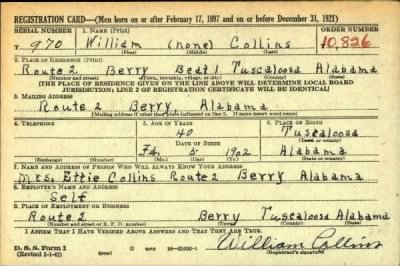 REGISTRATION CARD—(Men born on or after February 17, 1897 and on or before December 31, 1921)
SERIAL NUMBER 1. NAME (Print) ORDER NUMBER
T 970 William (none) Collins 10,826
(First) (Middle) (Last)
2. PLACE OF RESIDENCE (Print)
Route 2 Berry Beat 1 Tuscaloosa Alabama
(Number and street) (Town, township, village, or city) (County) (State)
[THE PLACE OF RESIDENCE GIVEN ON THE LINE ABOVE WILL DETERMINE LOCAL BOARD
JURISDICTION; LINE 2 OF REGISTRATION CERTIFICATE WILL BE IDENTICAL]
3. MAILING ADDRESS
Route 2 Berry, Alabama
[Mailing address if other than place indicated on line 2. If same insert word same]
4. TELEPHONE 5. AGE IN YEARS 6. PLACE OF BIRTH
40 Tuscaloosa
DATE OF BIRTH (Town or county)
5 1902 Alabama
(Exchange) (Number) (Mo.) (Day) (Yr.) (State or country)
7. NAME AND ADDRESS OF PERSON WHO WILL ALWAYS KNOW YOUR ADDRESS
Mrs. Ettie Collins Route 2 Berry Alabama
8. EMPLOYER'S NAME AND ADDRESS
Self
9. PLACE OF EMPLOYMENT OR BUSINESS
Route 2 Berry Tuscaloosa Alabama
(Number and street or R. F. D. number) (Town) (County) (State)
I AFFIRM THAT I HAVE VERIFIED ABOVE ANSWERS AND THAT THEY ARE TRUE.
D. S. S. Form 1
(Revised 1-1-42) (over)
William Collins
(Registrant's signature)